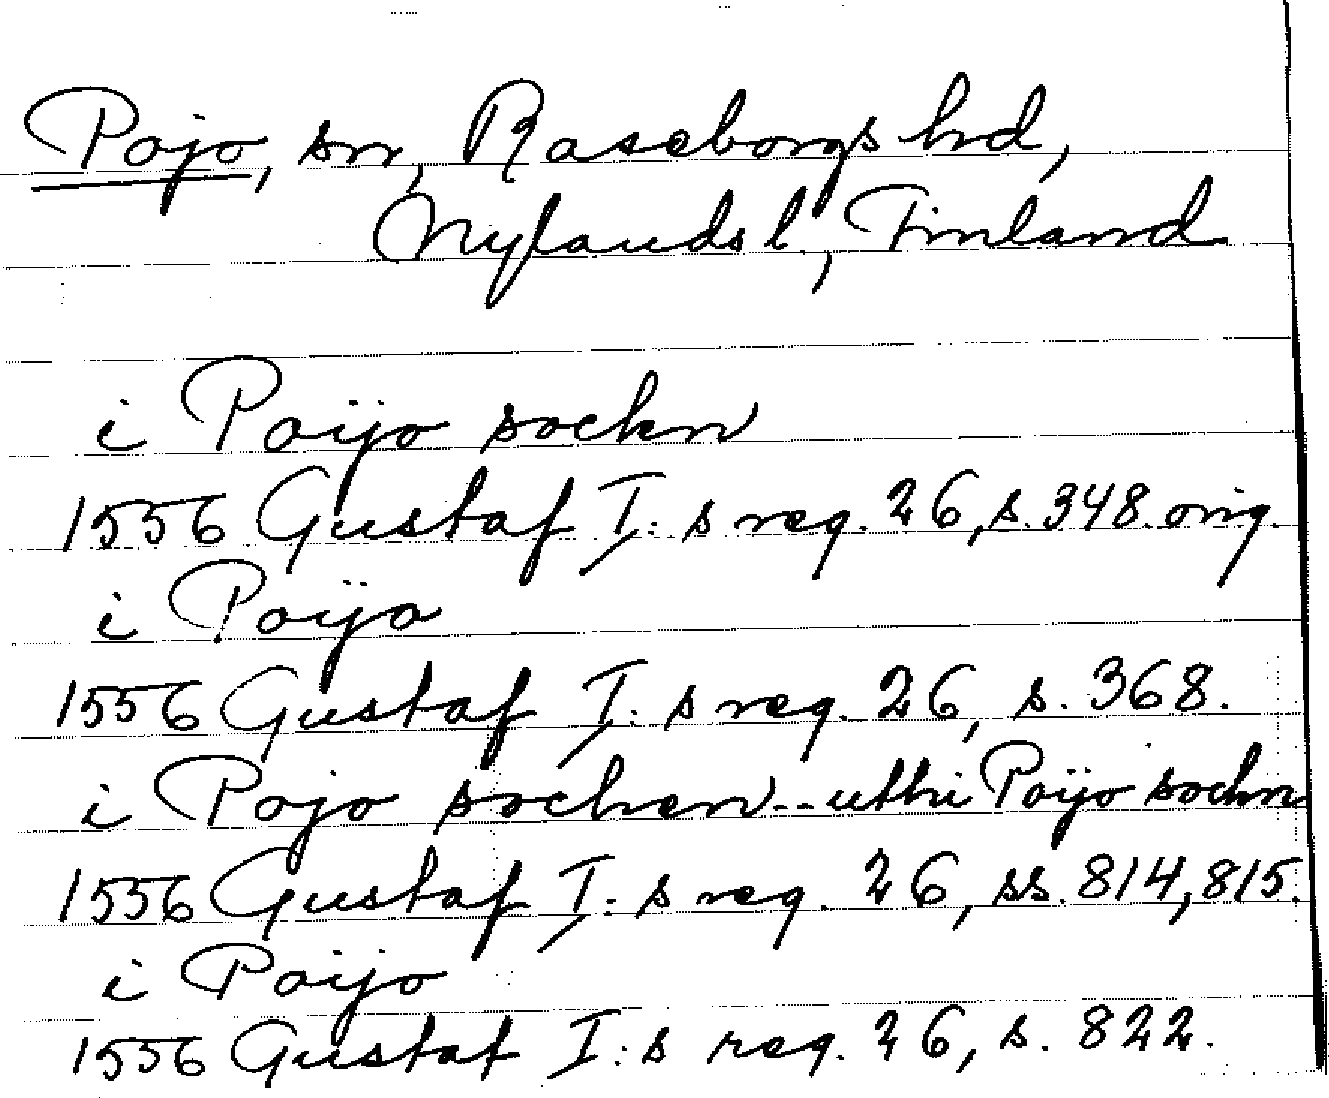 Pojo, sn, Raseborgs hd,
Nylands l, Finland
i Poijo sockn
1556 Gustaf I:s reg. 26, s. 348. orig.
i Poijo
1556 Gustaf I:s reg. 26, s. 368.
i Pojo sochen -- uthi Poijo sochn
1556 Gustaf I:s reg. 26, ss. 814, 815.
i Poijo
1556 Gustaf I:s reg. 26, s. 822.